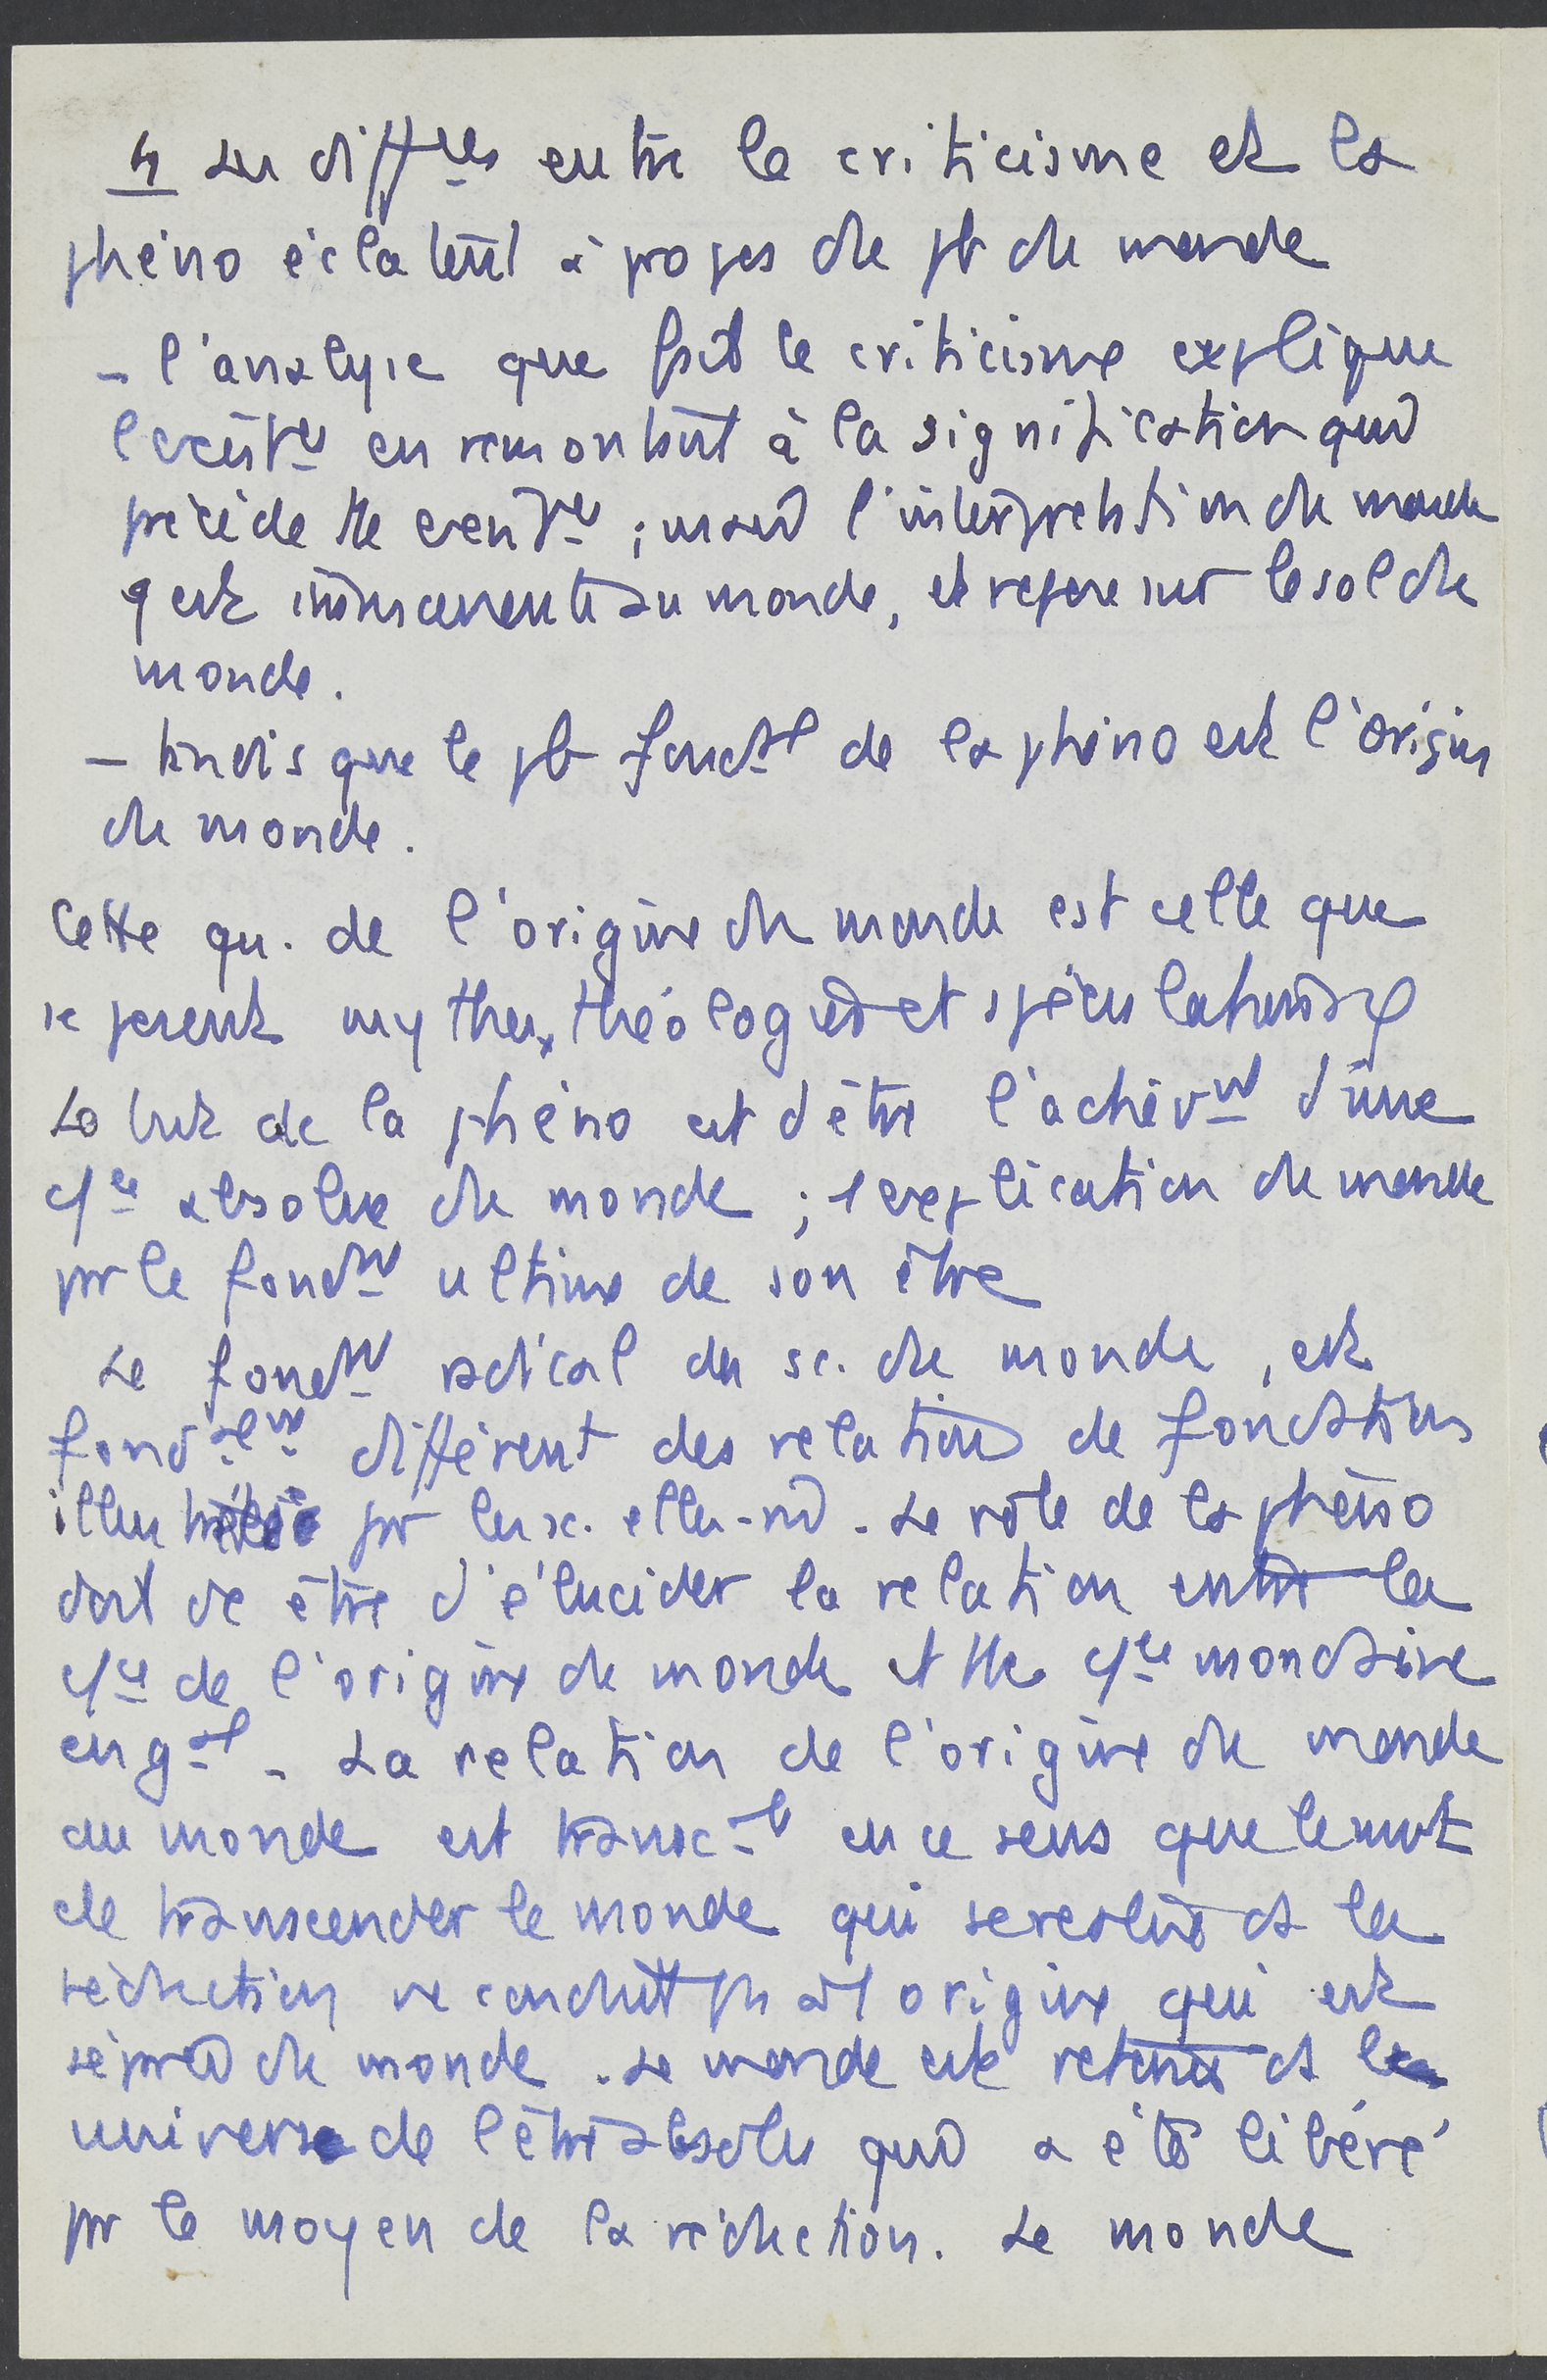 4 Les diff^ces entre le criticisme et la
phéno éclatent à propos du pb du monde
- l'analyse que fait le criticisme explique
l'existce en remontant à la signification qui
précède tte existce ; mais l'interprétation du monde
q est immanente au monde, et repose sur le sol du
monde.
- tandis que le pb fondal de la phéno est l'origine
du monde.
Cette qu. de l'origine du monde est celle que
se posent mythes, théologies et spéculations φ
Le but de la phéno est d'être l'achèvt d'une
csce absolue du monde ; l'explication du monde
par le fondt ultime de son être
Le fondt radical des sc. du monde, est
fondalt différent des relations de fondations
par les sc. elles-mêmes. Le rôle de la phéno
doit dc être d'élucider la relation entre la
csce de l'origine du monde et tte csce mondaine
en gal. La relation de l'origine du monde
au monde est transcale en ce sens que le mvt
de transcender le monde qui se résout ds la
réduction ne conduit pas à 1 origine qui est
séparée du monde. Le monde est retenu ds l'
univers de l'être absolu qui a été libéré
par le moyen de la réduction. Le monde